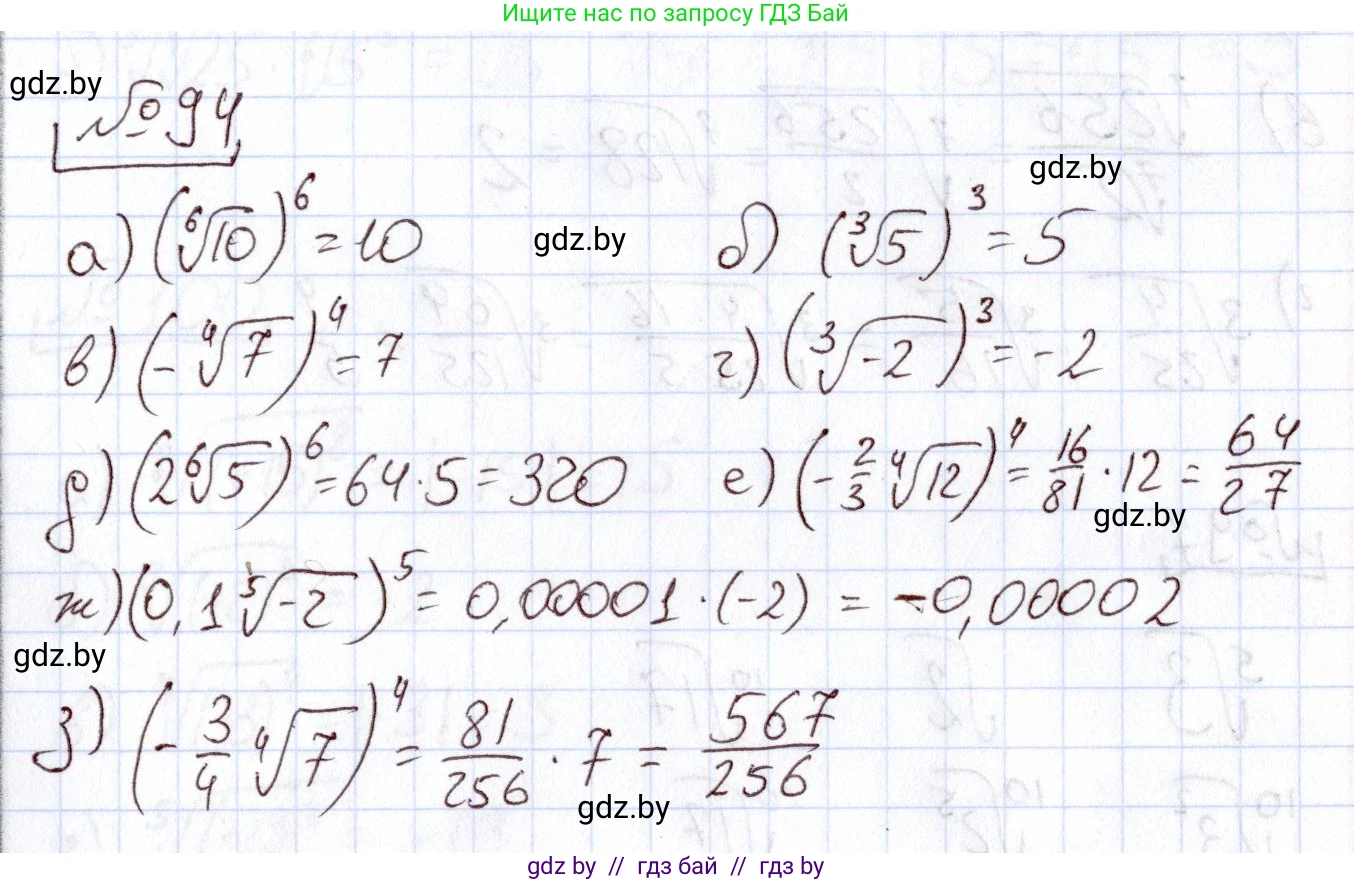 Ищите нас по запросу ГДЗ Бай
gdz.by
№ 94
gdz.by
а) (⁶√10)⁶ = 10 gdz.by б) (³√5)³ = 5
в) (-⁴√7)⁴ = 7 г) (³√-2)³ = -2
д) (2⁶√5)⁶ = 64·5 = 320 е) (-2/3 ⁴√12)⁴ = 16/81 · 12 = 64/27
gdz.by
ж) (0,1 ⁵√-2)⁵ = 0,00001 · (-2) = -0,00002
gdz.by
з) (-3/4 ⁴√7)⁴ = 81/256 · 7 = 567/256
gdz.by
gdz by // гдз бай // гдз by